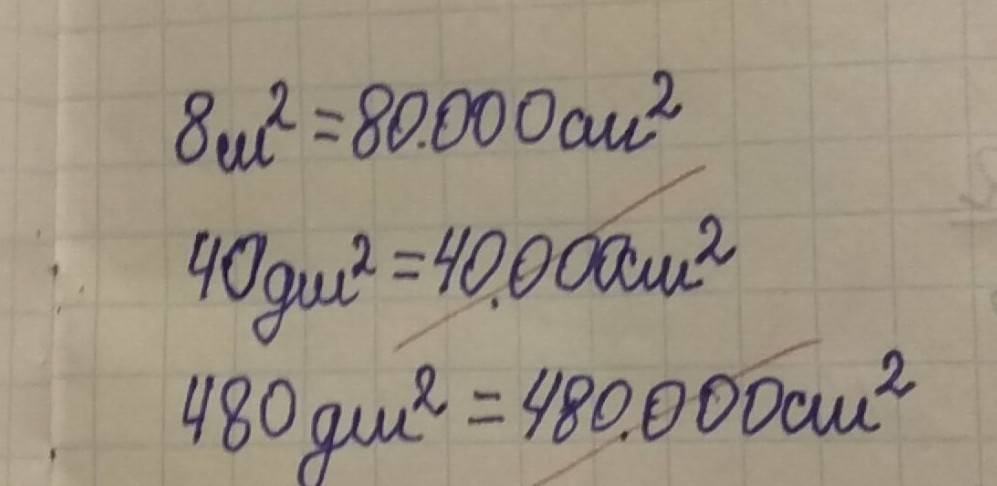 8м² = 80.000 см²
40 дм² = 40.000 см²
480 дм² = 480.000 см²